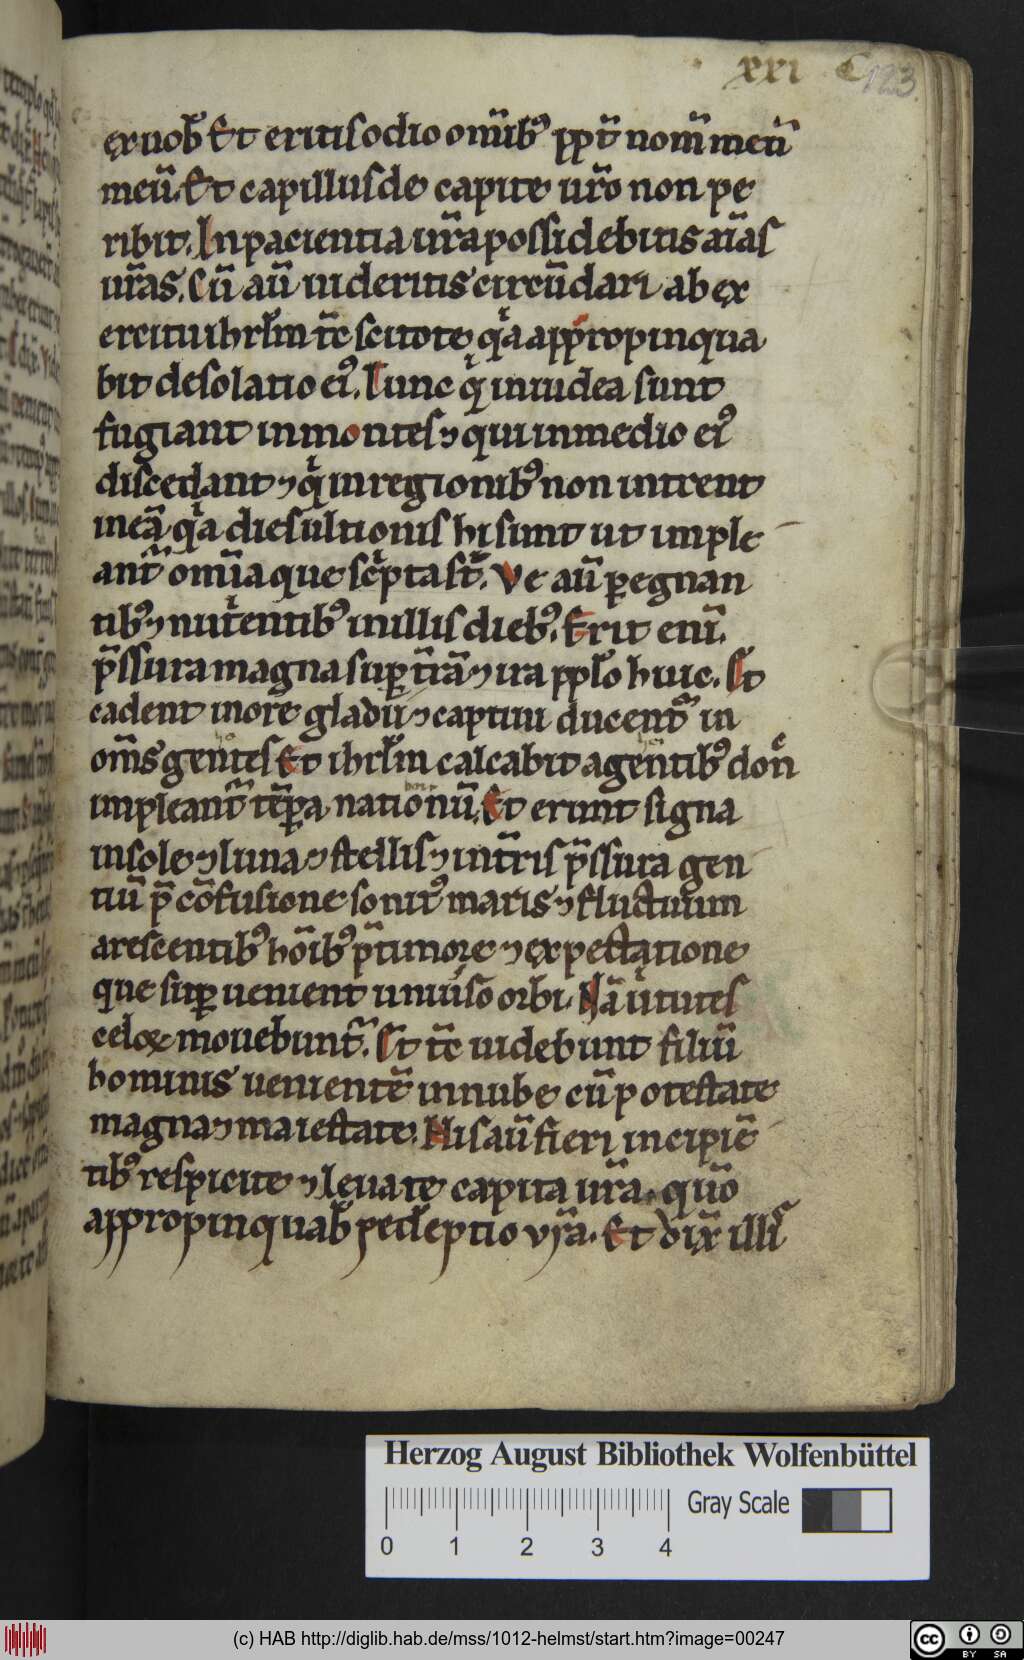 xxi C 123
ex uob̄ Et eritis odio om̄ib⁹ ppt̄ nom̄ meū
meū. Et capillus de capite ur̄o non pe
ribit. In pacientia ur̄a possidebitis aīas
ur̄as. Cū aū uideritis circūdari ab ex
ercitu ihrl̄m tc̄ scitote qͥa appropinqua
bit desolatio ei⁹. Tunc qͥ in iudea sunt
fugiant in montes ⁊ qui in medio ei⁹
discedant ⁊ qͥ in regionib⁹ non intrent
in eā qͥa dies ultionis hi sunt ut imple
ant̄ om̄ia que scͥpta st̄. Ve aū p̱regnan
tib⁹ ⁊ nutͥentib⁹ in illis dieb⁹. Erit enī.
p̄ssura magna sup̱ tr̄ā ⁊ ira pplo̅ huic. Et
cadent in ore gladii ⁊ captiui ducent̄ in
om̄s gentes Et ihrl̄m calcabit̄ a gentib⁹ don̄
impleant̄ tēp̱a nationū. Et erunt signa
in sole ⁊ luna ⁊ stellis ⁊ in tr̄is p̄ssura gen
tiū p̄ cōfusione sonit⁹ maris ⁊ fluctuum
arescentib⁹ hōib⁹ p̄ timore ⁊ expectatione
que sup̱uenient uniu̾so orbi. Nā uͥtutes
celoꝝ mouebunt̄. Et tc̄ uidebunt filiū
hominis uenientē in nube cū potestate
magna ⁊ maiestate. His aū fieri incipiē
tib⁹ respicite ⁊ leuate capita ur̄a. quō
appropinquab̄ redēptio vr̄a. Et dix̄ illiˢ
Herzog August Bibliothek Wolfenbüttel
0 1 2 3 4
Gray Scale
(c) HAB http://diglib.hab.de/mss/1012-helmst/start.htm?image=00247
cc BY SA